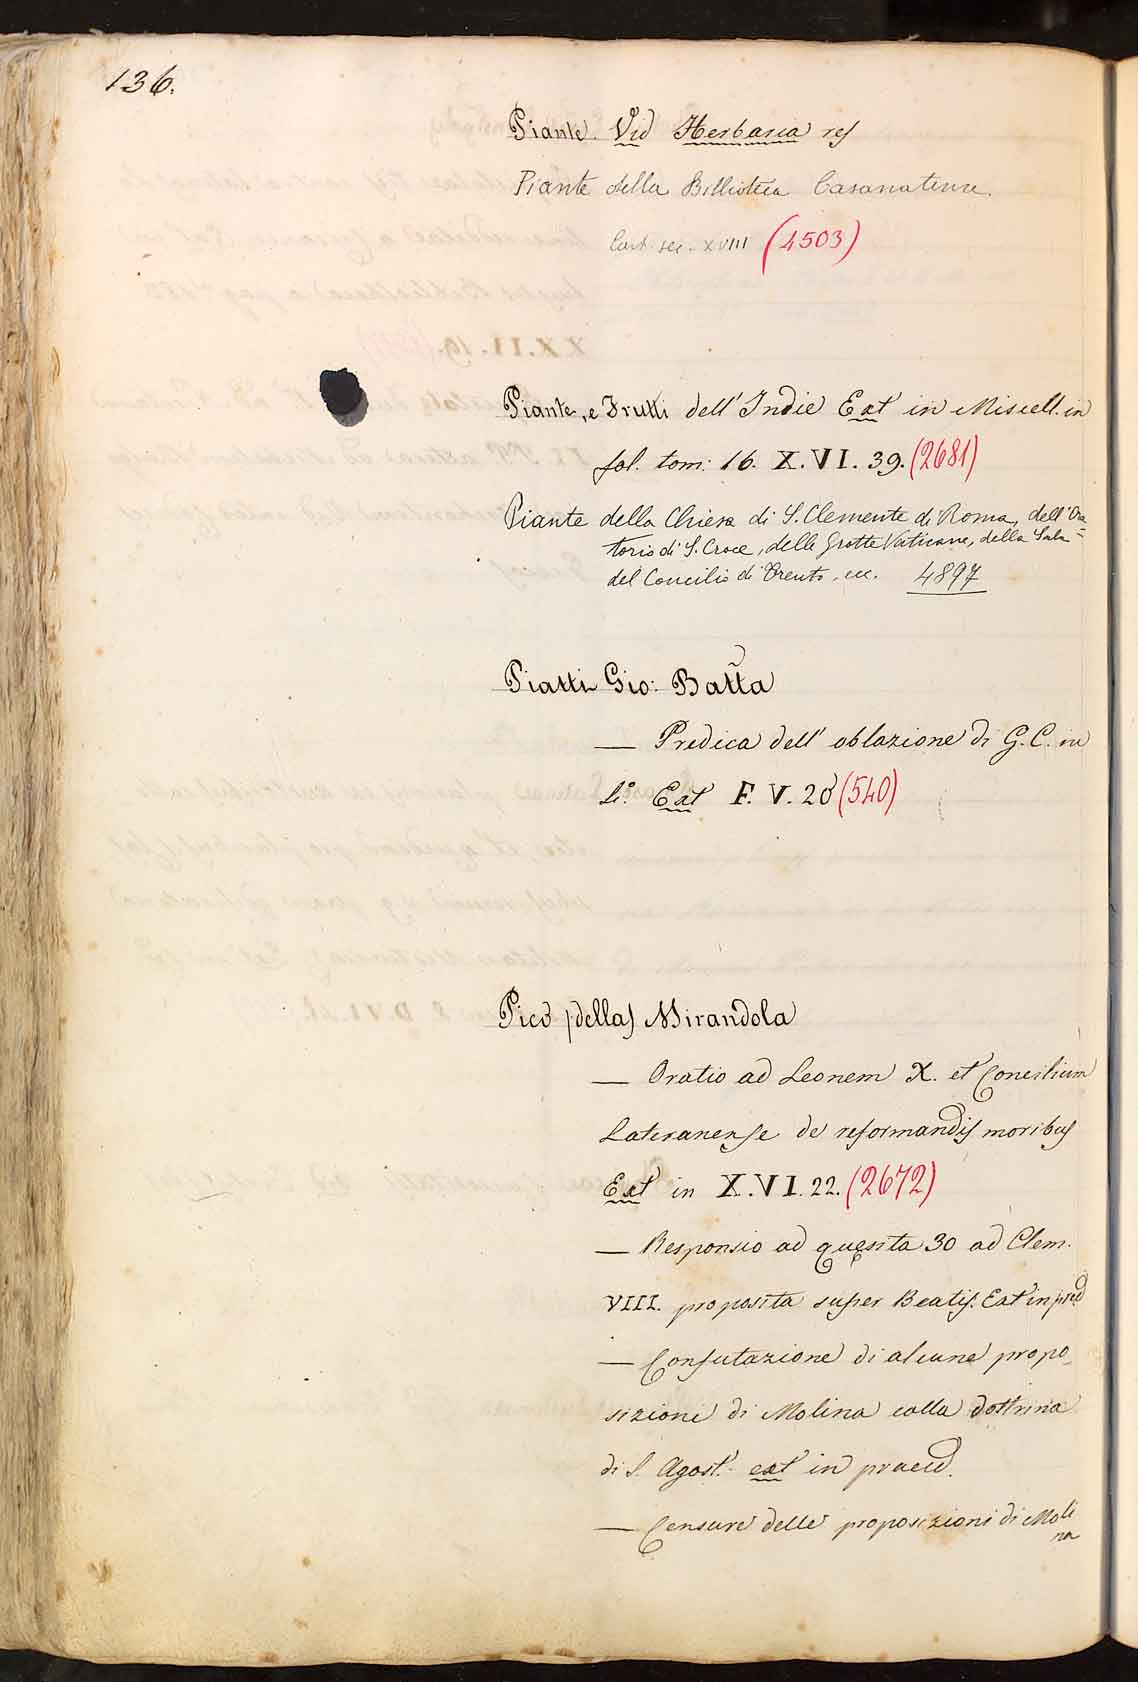 136.
Piante. Vid Herbaria res
Piante della Biblioteca Casanatense.
Cart. sec. XVIII (4503)
Piante, e Frutti dell' Indie Ext in Miscell. in
fol. tom: 16. X.VI. 39. (2681)
Piante della Chiesa di S. Clemente di Roma, dell' Ora
torio di S. Croce, delle Grotte Vaticane, della Sala =
del Concilio di Trento, ec. 4897
Piatti Gio: Batta
— Predica dell' oblazione di G. C. in
Ext F. V. 20 (540)
Pico (della) Mirandola
— Oratio ad Leonem X. et Concilium
Lateranense de reformandis moribus
Ext in X.VI. 22. (2672)
— Responsio ad quesita 30 ad Clem.
VIII. proposita super Beatis. Ext in pred
— Confutazione di alcune propo_
sizioni di Molina colla dottrina
di S. Agost. ext in praed.
— Censure delle proposizioni di Moli
na